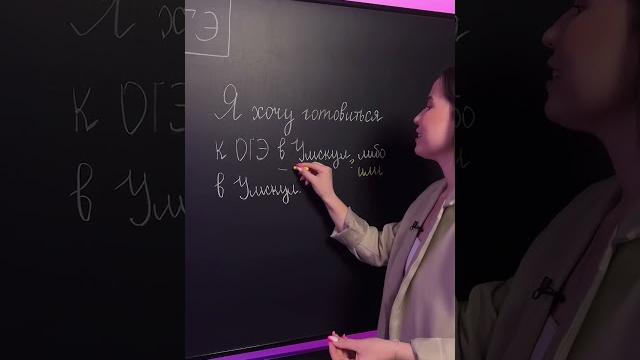 Э
Я хочу готовиться
к ОГЭ в Умскул, либо
? или
в Умскул.